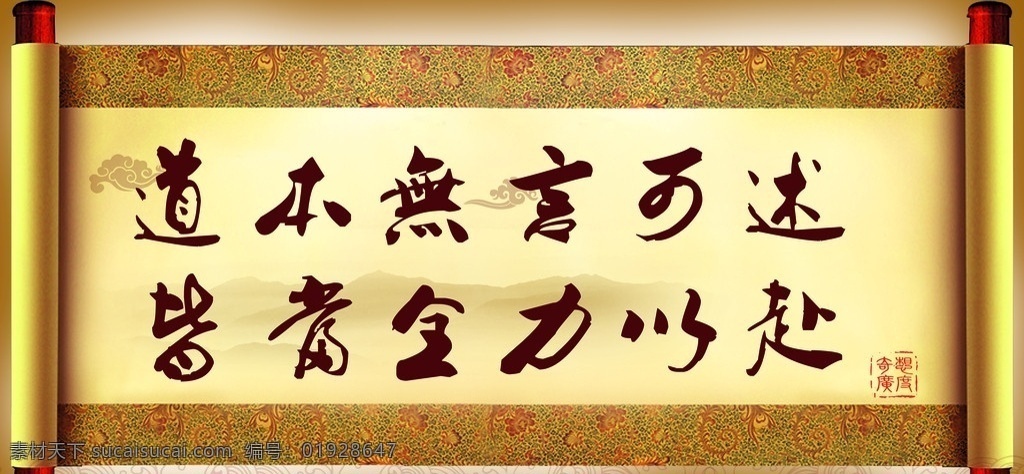 道本無言可述
皆當全力以赴
素材天下 sucaisucai.com 编号: 01928647